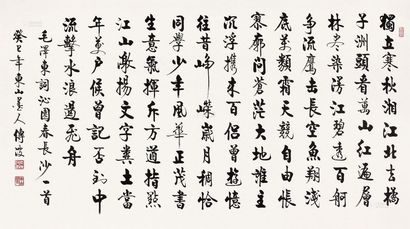 獨立寒秋湘江北去橘
子洲頭看萬山紅遍層
林尽染漫江碧透百舸
争流鷹击長空魚翔淺
底万類霜天競自由悵
寥廓問蒼茫大地誰主
沉浮携来百侣曾遊憶
往昔崢嶸歲月稠恰
同學少年風華正茂書
生意氣揮斥方遒指點
江山激揚文字糞土當
年萬户侯曾記否到中
流擊水浪遏飛舟
毛澤東詞沁園春長沙一首
癸巳年東山人傳波